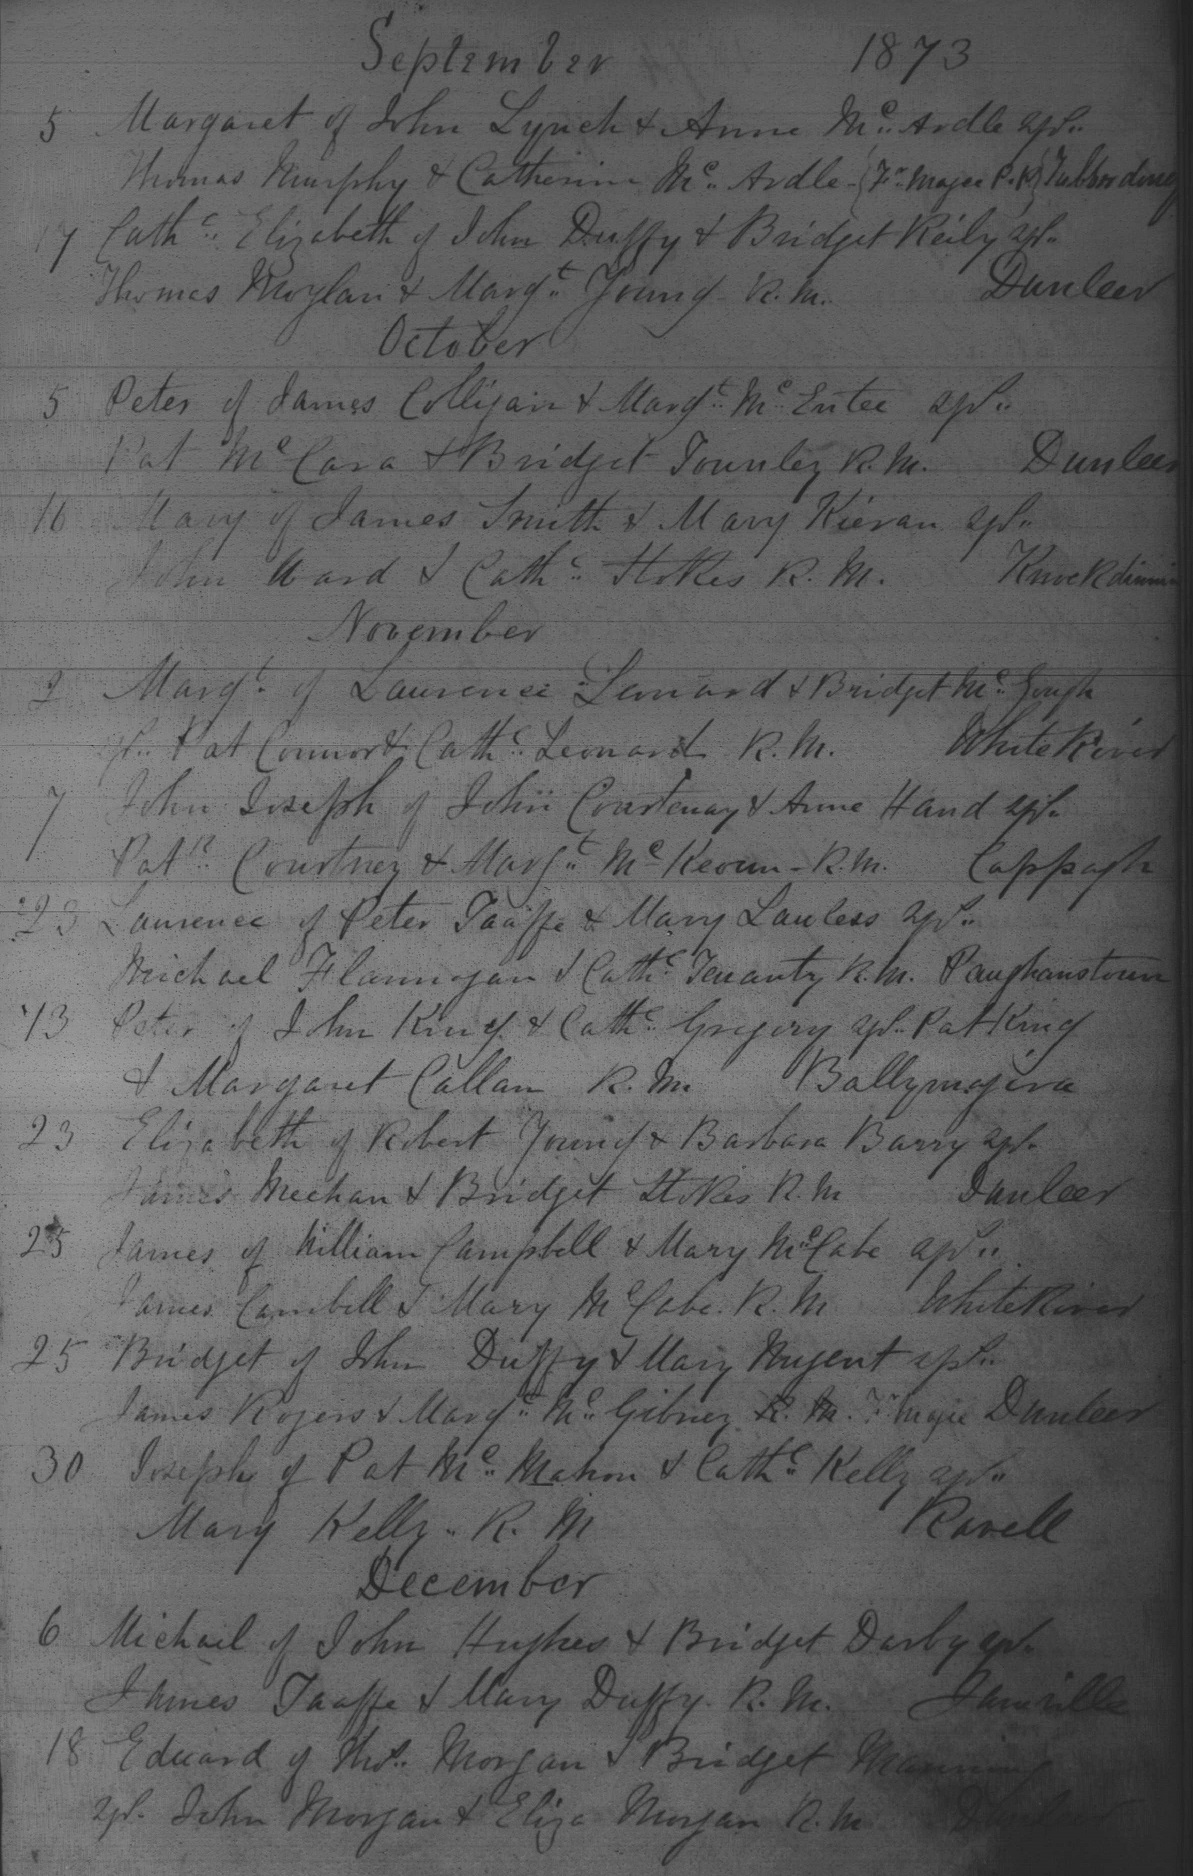 September 1873
5 Margaret of John Lynch & Anne Mc.. Ardle sps..
Thomas Murphy & Catherine Mc.. Ardle - {Fr. Magee P.P.}
17 Cathe.. Elizabeth of John Duffy & Bridget Reily sps..
Thomas Moylan & Margt.. Young - R. M. Dunleer
October
5 Peter of James Colligan & Margt.. Mc Entee sps..
Pat Mc Cara & Bridget Townley R. M. Dunleer
16 Mary of James Smith & Mary Kieran sps..
John Ward & Cathe.. Stokes R. M.
November
2 Margt. of Laurence Leonard & Bridget Mc.. Gough
sps.. Pat Connor & Cathe.. Leonard R. M. White River
7 John Joseph of John Courtenay & Anne Hand sps..
Patk.. Courtney & Margt.. Mc Keown - R. M. Cappogh
23 Laurence of Peter Taaffe & Mary Lawless sps..
Michael Flannogan & Cathe.. Tenanty R. M. Paughanstown
13 Peter of John King & Cathe.. Gregory sps.. Pat King
& Margaret Callan R. M.
23 Elizabeth of Robert Young & Barbara Barry sps.
James Meehan & Bridget Stokes R. M Dunleer
25 James of William Campbell & Mary Mc.. Cabe sps..
James Cambell & Mary Mc Cabe. R. M White River
25 Bridget of John Duffy & Mary Nugent sps..
James Rogers & Margt.. Mc.. Gibney R. M. Fr Magee Dunleer
30 Joseph of Pat Mc.. Mahon & Cathe.. Kelly sps..
Mary Kelly.. R. M Ravell
December
6 Michael of John Hughes & Bridget Darby sps.
James Taaffe & Mary Duffy. R. M.
18 Edward of Thos.. Morgan & Bridget Manning
sps. John Morgan & Eliza Morgan R. M